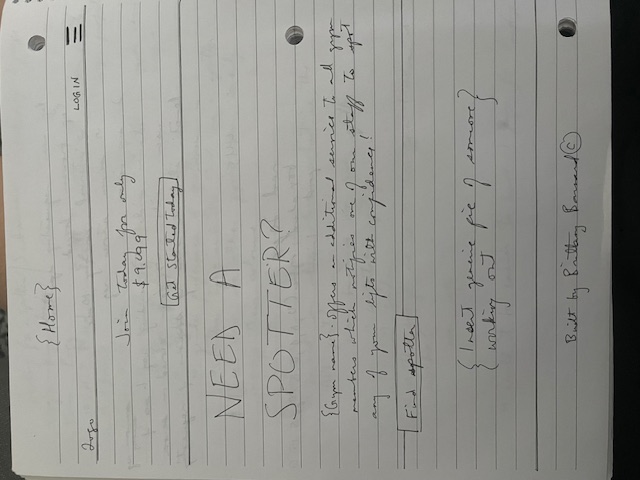 {Home}
Logo
LOGIN
Join today for only
$9.99
Get Started Today
NEED A
SPOTTER?
{Gym name} offers an additional service to all gym
members which notifies one of our staff to spot
any of your lifts with confidence!
Find spotter
{Insert generic pic of someone
working out}
Built by Brittany Barnard ©